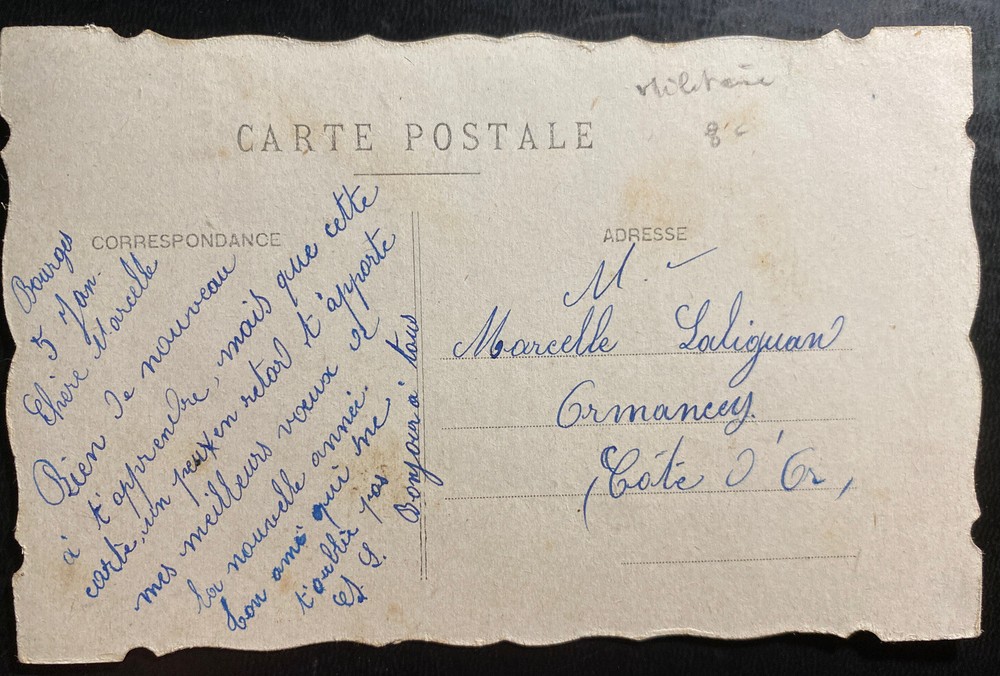 Militaire
CARTE POSTALE
CORRESPONDANCE
Bourges
5 Jan.
Chère Marcelle
Rien de nouveau
à t'apprendre, mais que cette
carte, un peux en retard t'apporte
mes meilleurs vœux et
la nouvelle année.
Ton ami qui ne
t'oublie pas
Bonjour à tous
ADRESSE
M.
Marcelle Laliguan
Ormancey
(Côte d'Or)